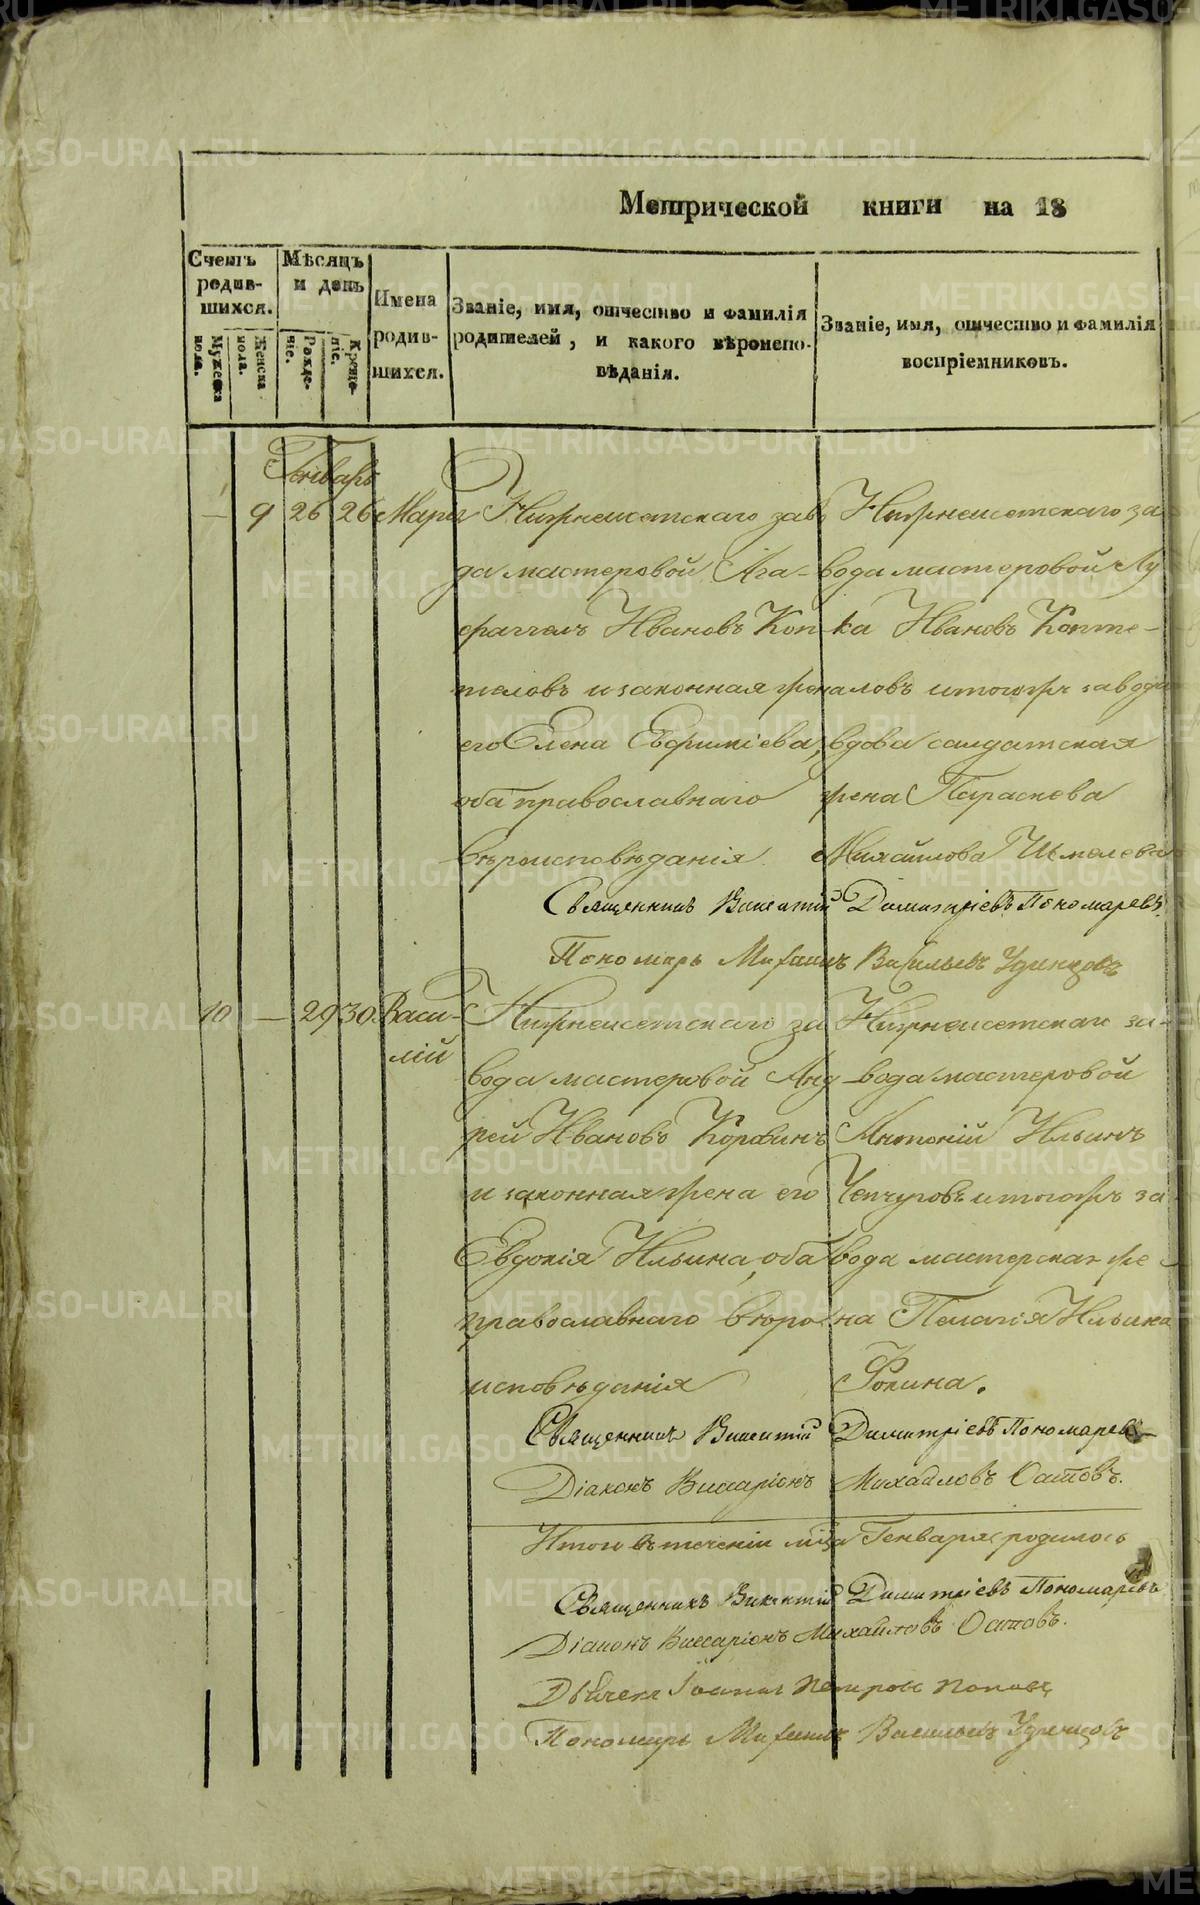 Метрической книги на 18
Счетъ родив- шихся.
Мужеска пола.
Женска пола.
Мѣсяцъ и день
Рожде- ніе.
Креще- ніе.
Имена родив- шихся.
Званіе, имя, отчество и фамилія родителей, и какого вѣроиспо- вѣданія.
Званіе, имя, отчество и фамилія воспріемниковъ.
Генварь
— 9 26 26 Марія
Нижнеисетскаго заво
да мастеровой Ага-
фаггелъ Ивановъ Коп
теловъ и законная жена
его Елена Евфиміева,
оба православнаго
вѣроисповѣданія
Нижнеисетскаго за
вода мастеровой Лу
ка Ивановъ Копте-
ловъ и тогожъ завода
вдова салдатская
жена Параскева
Михаилова Шмелева
Священникъ Викентій Димитріевъ Пономаревъ
Пономарь Михаилъ Васильевъ Удинцовъ
10 — 29 30 Васи-
лій
Нижнеисетскаго за
вода мастеровой Анд
рей Ивановъ Корфинъ
и законная жена его
Евдокія Ильина, оба
православнаго вѣро
исповѣданія
Нижнеисетскаго за-
вода мастеровой
Антоній Ильинъ
Чепчуговъ и тогожъ за
вода мастерская же
на Пелагія Ильина
Фокина.
Священникъ Викентій Димитріевъ Пономаревъ
Діаконъ Виссаріонъ Михайловъ
Итого въ теченіи мѣца Генваря родилось
Священникъ Викентій Димитріевъ Пономаревъ
Діаконъ Виссаріонъ Михайловъ
Дьячекъ Іоаннъ Петровъ Поповъ
Пономарь Михаилъ Васильевъ Удинцовъ
METRIKI.GASO-URAL.RU